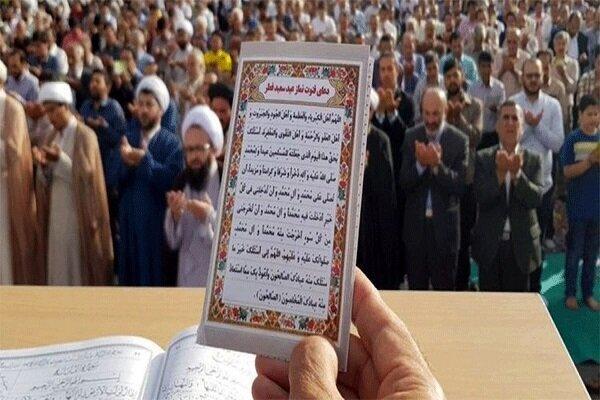 دعای قنوت نماز عید سعید فطر
اَللّهُمَّ اَهْلَ الْكِبْرِياءِ وَالْعَظَمَةِ وَ اَهْلَ الْجُودِ وَالْجَبَرُوتِ وَ
اَهْلَ الْعَفْوِ وَالرَّحْمَةِ وَ اَهْلَ التَّقْوى وَالْمَغْفِرَةِ اَسْئَلُكَ
بِحَقِّ هذَا الْيَومِ الَّذى جَعَلْتَهُ لِلْمُسْلِمينَ عيداً وَلِمُحَمَّدٍ
صَلَّى اللهُ عَلَيْهِ وَ آلِهِ ذُخْراً وَ شَرَفاً وَ كَرامَةً وَ مَزيداً اَنْ
تُصَلِّىَ عَلى مُحَمَّدٍ وَ آلِ مُحَمَّدٍ وَ اَنْ تُدْخِلَنى فى كُلِّ
خَيْرٍ اَدْخَلْتَ فيهِ مُحَمَّداً وَ آلَ مُحَمَّدٍ وَ اَنْ تُخْرِجَنى
مِنْ كُلِّ سُوءٍ اَخْرَجْتَ مِنْهُ مُحَمَّداً وَ آلَ مُحَمَّدٍ
صَلَواتُكَ عَلَيْهِ وَ عَلَيْهِمْ اَللّهُمَّ اِنّى اَسْئَلُكَ خَيْرَ ما
سَئَلَكَ مِنْهُ عِبادُكَ الصّالِحُونَ وَ اَعُوذُ بِكَ مِمَّا اسْتَعاذَ
مِنْهُ عِبادُكَ الْمُخْلِصُونَ (الصّالِحُونَ).